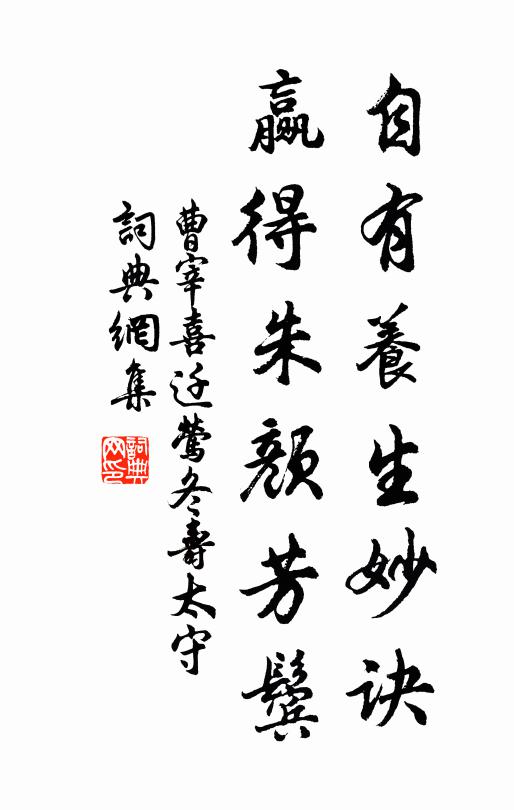 自有養生妙訣
贏得朱顏芳鬢
曹宰喜迁鶯冬壽太守
詞典網集
詞典
网印